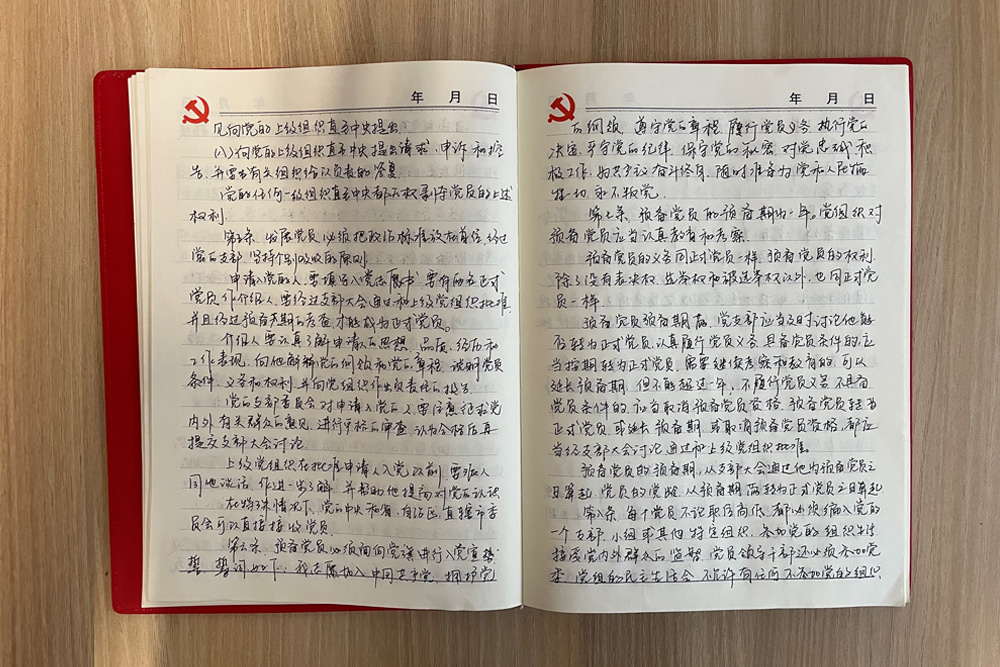 年 月 日
见向党的上级组织直至中央提出
(八)向党的上级组织直至中央提出请求、申诉和控
告,并要求有关组织给以负责的答复。
党的任何一级组织直至中央都无权剥夺党员的上述
权利.
第五条、发展党员,必须把政治标准放在首位,经过
党的支部,坚持个别吸收的原则
申请入党的人,要填写入党志愿书,要有两名正式
党员作介绍人,要经过支部大会通过和上级党组织批准,
并且经过预备期的考查,才能成为正式党员。
介绍人要认真了解申请人的思想、品质、经历和
工作表现,向他解释党的纲领和党的章程,说明党员
条件、义务和权利,并向党组织作出负责任的报告
党的支部委员会对申请入党的人,要注意征求党
内外有关群众的意见,进行严格的审查,认为合格后再
提交支部大会讨论
上级党组织在批准申请人入党以前,要派人
同他谈话,作进一步了解,并帮助他提高对党的认识
在特殊情况下,党的中央和省、自治区、直辖市委
员会可以直接接收党员.
第六条、预备党员必须面向党旗进行入党宣誓.
誓词如下:我志愿加入中国共产党,拥护党
年 月 日
的纲领,遵守党的章程,履行党员义务,执行党的
决定,严守党的纪律,保守党的秘密,对党忠诚,积
极工作,为共产主义奋斗终身,随时准备为党和人民牺
牲一切,永不叛党。
第七条,预备党员的预备期为一年。党组织对
预备党员应当认真教育和考察.
预备党员的义务同正式党员一样,预备党员的权利,
除了没有表决权、选举权和被选举权以外,也同正式党
员一样
预备党员预备期满,党支部应当及时讨论他能
否转为正式党员,认真履行党员义务,具备党员条件的,应
当按期转为正式党员,需要继续考察和教育的,可以
延长预备期,但不能超过一年,不履行党员义务,不具备
党员条件的,应当取消预备党员资格,预备党员转为
正式党员,或延长预备期,或取消预备党员资格,都应
当经支部大会讨论通过和上级党组织批准.
预备党员的预备期,从支部大会通过他为预备党员之
日算起,党员的党龄,从预备期满转为正式党员之日算起
第八条,每个党员,不论职务高低,都必须编入党的
一个支部、小组或其他特定组织,参加党的组织生活,
接受党内外群众的监督,党员领导干部还必须参加党
委、党组的民主生活会,不允许有任何不参加党的组织